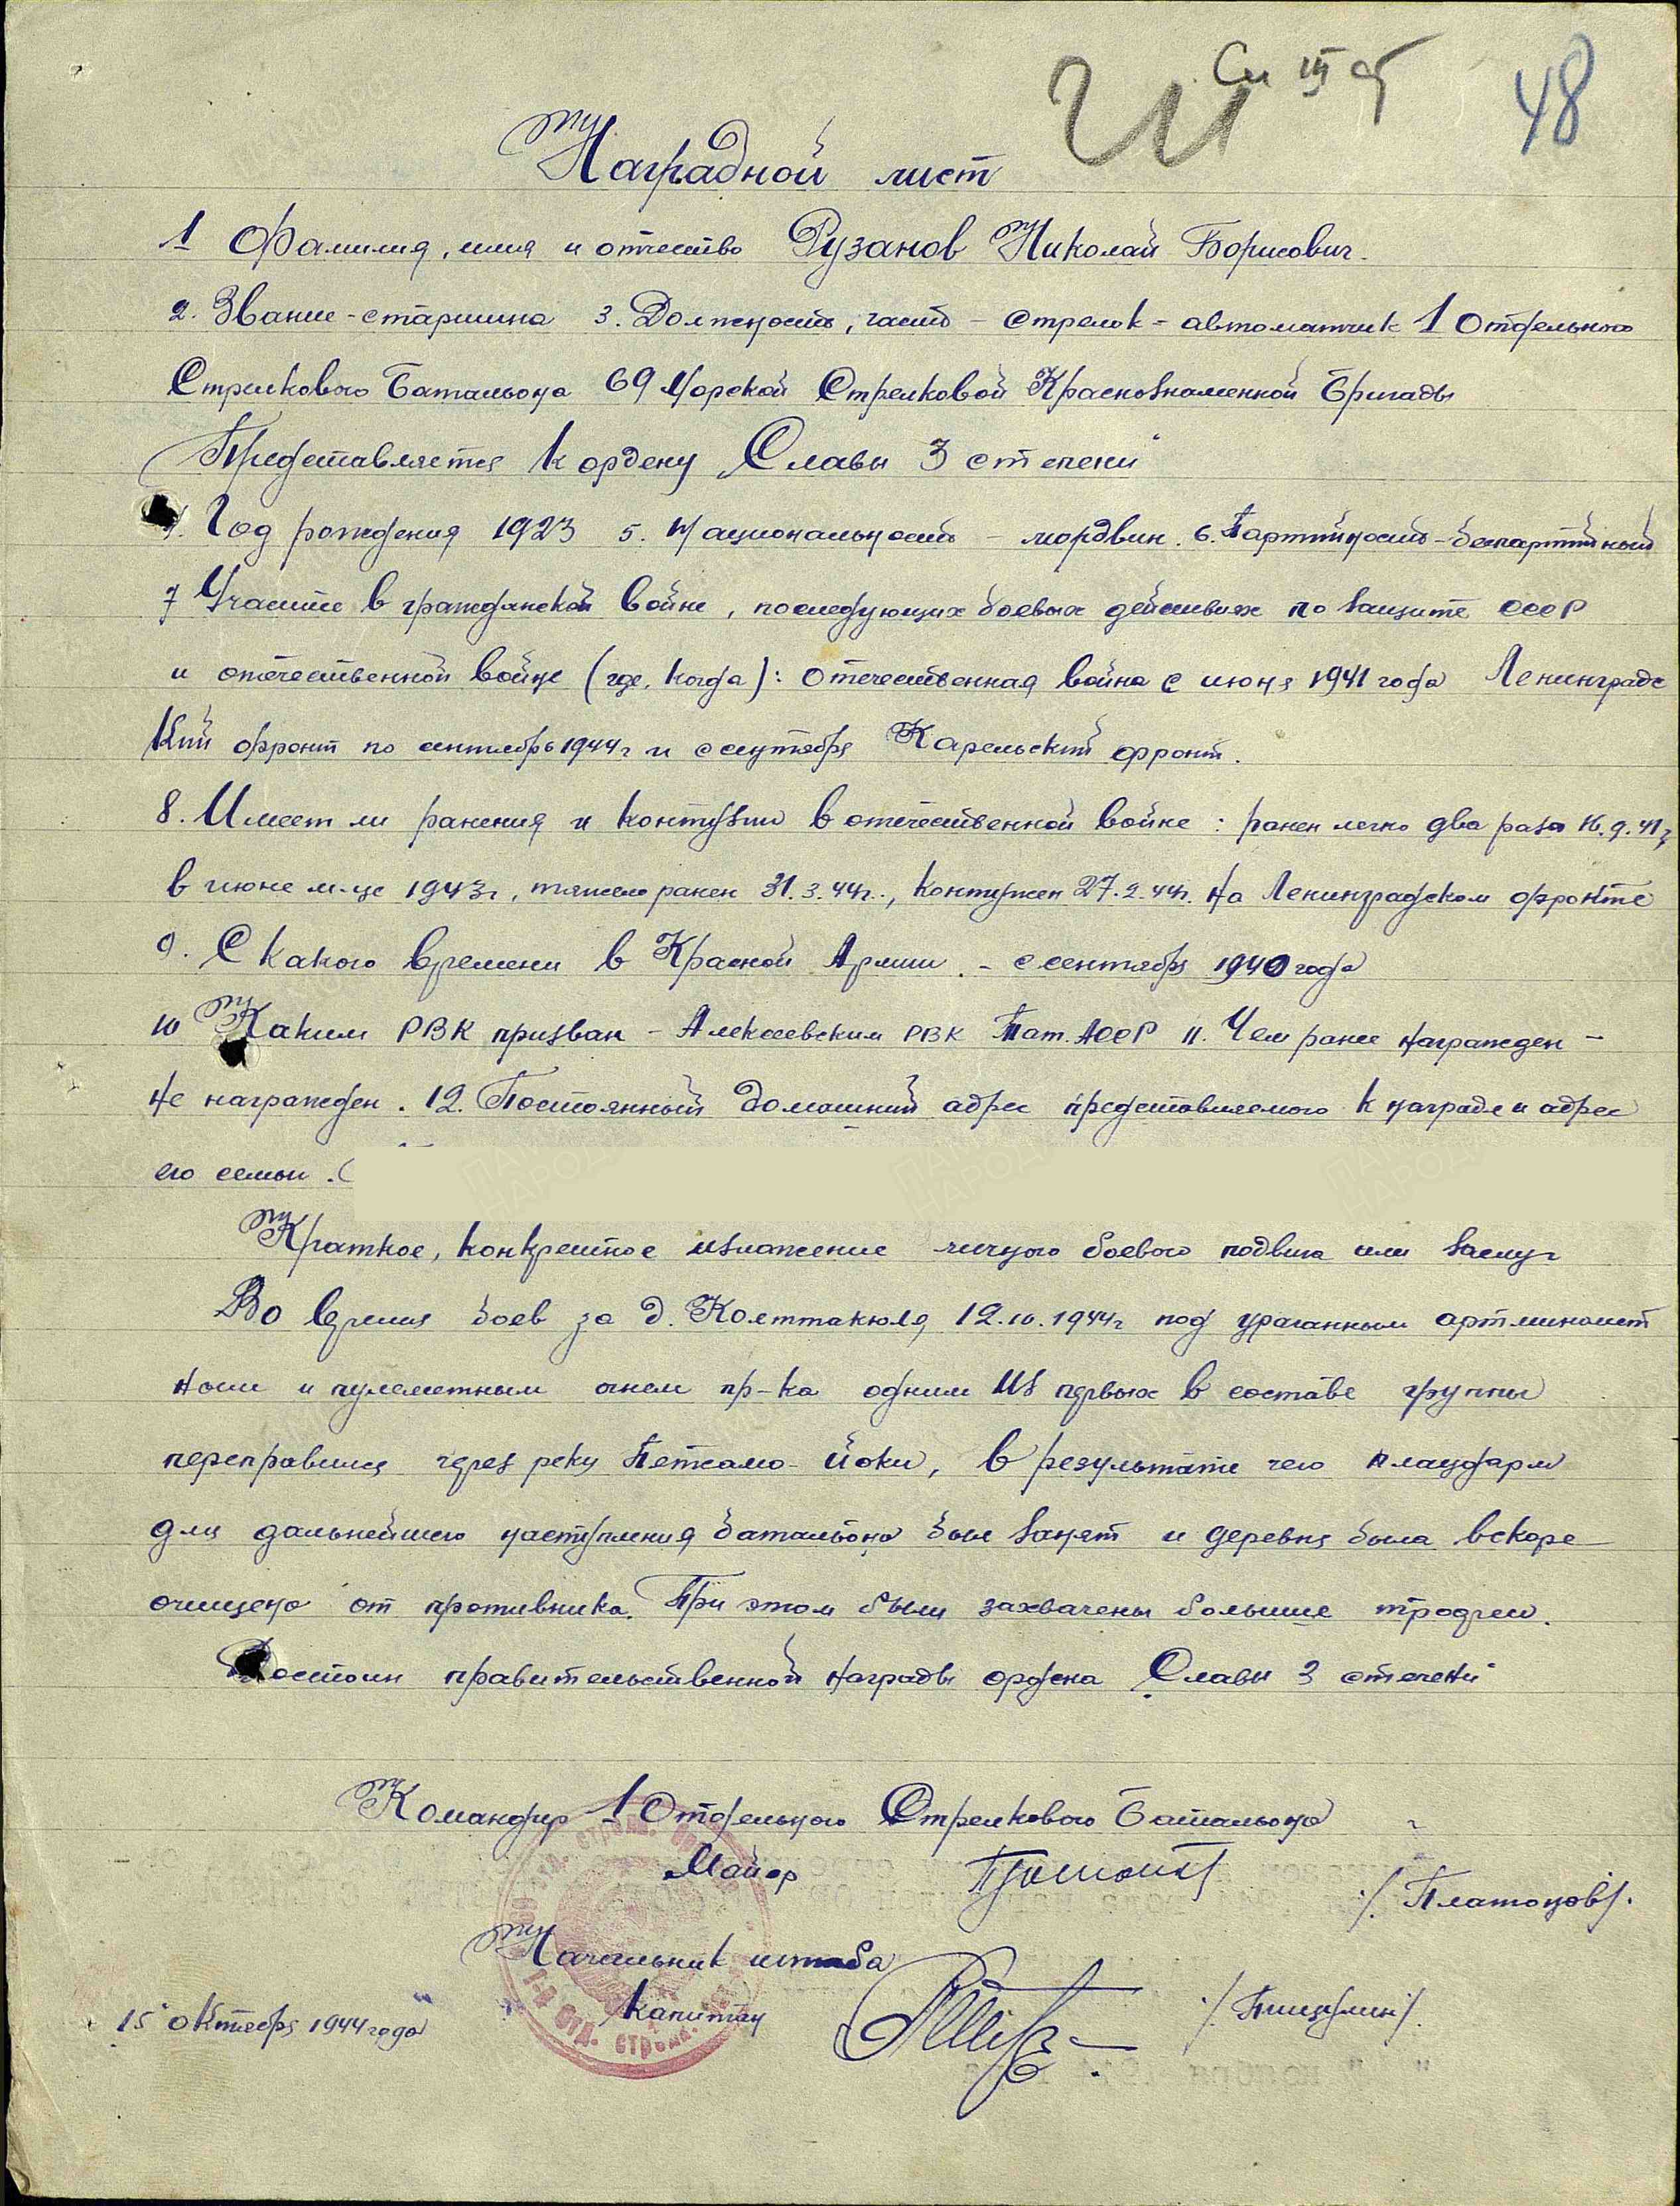 48
Наградной лист
1 Фамилия, имя и отчество Рузанов Николай Борисович.
2. Звание - старшина 3. Должность, часть - стрелок - автоматчик 1 Отдельного
Стрелкового Батальона 69 Морской Стрелковой Краснознаменной Бригады
Представляется к ордену Славы 3 степени"
4. Год рождения 1923 5. Национальность - мордвин. 6. Партийность - беспартийный
7 Участие в гражданской войне, последующих боевых действиях по защите СССР
и отечественной войне (где, когда): Отечественная война с июня 1941 года Ленинградс
кий фронт по сентябрь 1944г и с сентября Карельский фронт.
8. Имеет ли ранения и контузии в отечественной войне: ранен легко два раза 16.9.41г,
в июне м-це 1943г, тяжело ранен 31.3.44г., контужен 27.2.44г. на Ленинградском фронте
9. С какого времени в Красной Армии. - с сентября 1940 года
10 Каким РВК призван - Алексеевским РВК Тат. АССР 11. Чем ранее награжден -
не награжден. 12. Постоянный домашний адрес представляемого к награде и адрес
его семьи.
Краткое, конкретное изложение личного боевого подвига или заслуг
Во время боев за д. Колттакюля 12.10.1944г под ураганным артминомет
ным и пулеметным огнем пр-ка одним из первых в составе группы
переправился через реку Петсамо-йоки, в результате чего плацдарм
для дальнейшего наступления батальона был занят и деревня была вскоре
очищена от противника. При этом были захвачены большие трофеи.
Достоин правительственной награды ордена Славы 3 степени"
Командир 1 Отдельного Стрелкового Батальона
Майор /Платонов/.
Начальник штаба
капитан
15 октября 1944 года